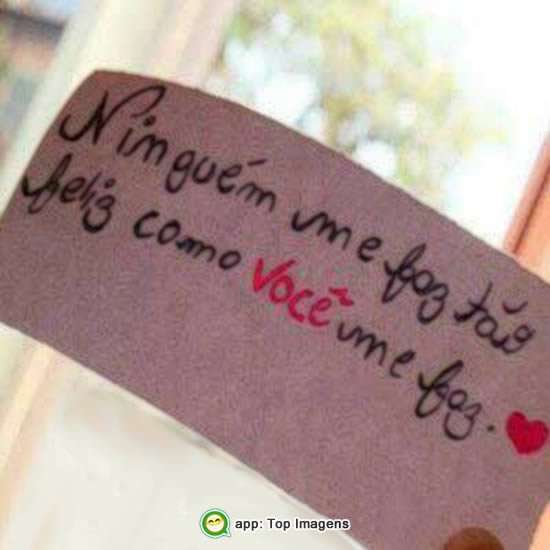 Ninguém me faz tão
feliz como você me faz. ♥
app: Top Imagens